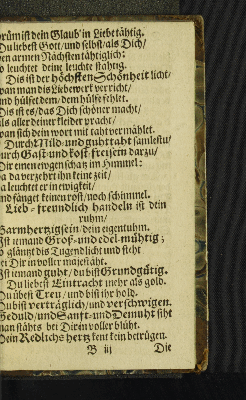 rüm ist dein Glaub' in Liebe tähtig.
Du liebest Gott/und selbst/als Dich/
en armen Nächsten tähtiglich:
o leuchtet deine leuchte stähtig.
Dis ist der höchsten Schönheit licht/
wan man dis Liebewerk verricht/
und hülfet dem/dem hülfe fehlet.
Dis ist es/das Dich schöner macht/
als aller deiner kleider pracht/
wan sich dein wort mit taht vermählet.
Durch Mild-und guhttaht samlestu/
durch Gast-und kost-freisein darzu/
Dir einen ewgen schatz im Himmel:
da da verzehrt ihn keine zeit/
da leuchtet er in ewigkeit/
und fänget keinen rost/noch schimmel.
Lieb-freundlich handeln ist dein
ruhm/
Barmhertzig sein/dein eigentuhm.
Ist iemand Groß-und edel-mühtig;
so glänzt die Tugendlicht und steht
bei Dir in voller majestäht.
Ist iemand guht/du bist Grundgütig.
Du liebest Eintracht mehr als gold.
Du übest Treu/und bist ihr hold.
Du bist verträglich/und verschwigen.
Geduld/und Sanft-und Demuht siht
man stähts bei Dir in voller blüht.
Dein Redlichs hertz kent kein betrügen.
B iij Die